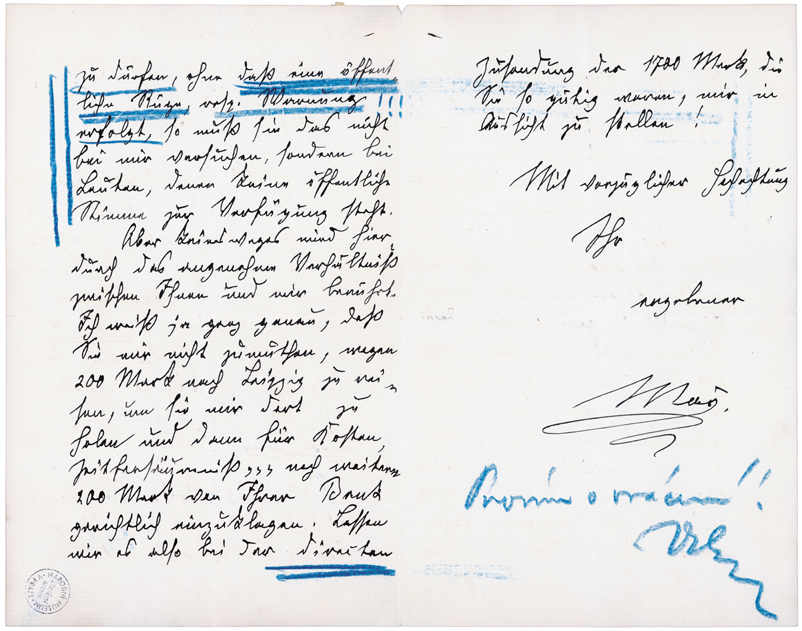 zu dürfen, ohne daß eine öffent-
liche Rüge, resp. Warnung!!!
erfolgt, so muß sie das nicht
bei mir versuchen, sondern bei
Leuten, denen keine öffentliche
Stimme zur Verfügung steht.
Aber keineswegs wird hier-
durch das angenehme Verhältniß
zwischen Ihnen und mir berührt.
Ich weiß ja ganz genau, daß
Sie mir nicht zumuthen, wegen
200 Mark nach Leipzig zu rei-
sen, um sie mir dort zu
holen und dann für Kosten,
Zeitversäumniß,,, noch weitere
200 Mark von Ihrer Bank
gerichtlich einzuklagen. Lassen
wir es also bei der directen
Zusendung der 1700 Mark, die
Sie so gütig waren, mir in
Aussicht zu stellen!
Mit vorzüglicher Hochachtung
Ihr
ergebener
May.
Prosím o vrácení!!
NÁRODNÍ MUSEUM